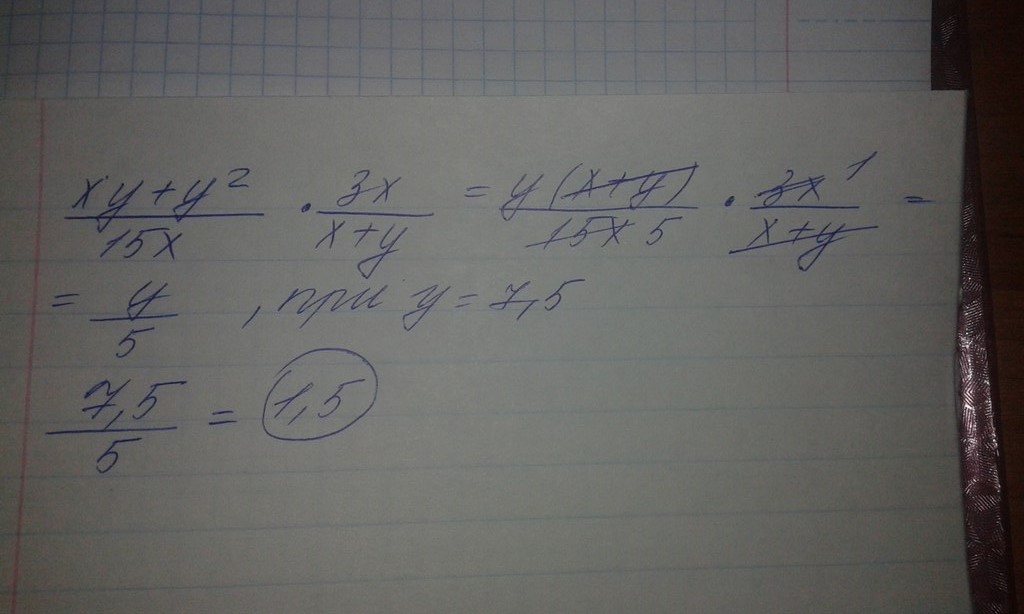 (xy+y²)/(15x) · (3x)/(x+y) = (y(x+y))/(15x 5) · (3x 1)/(x+y) =
= y/5 , при y = 7,5
7,5/5 = 1,5